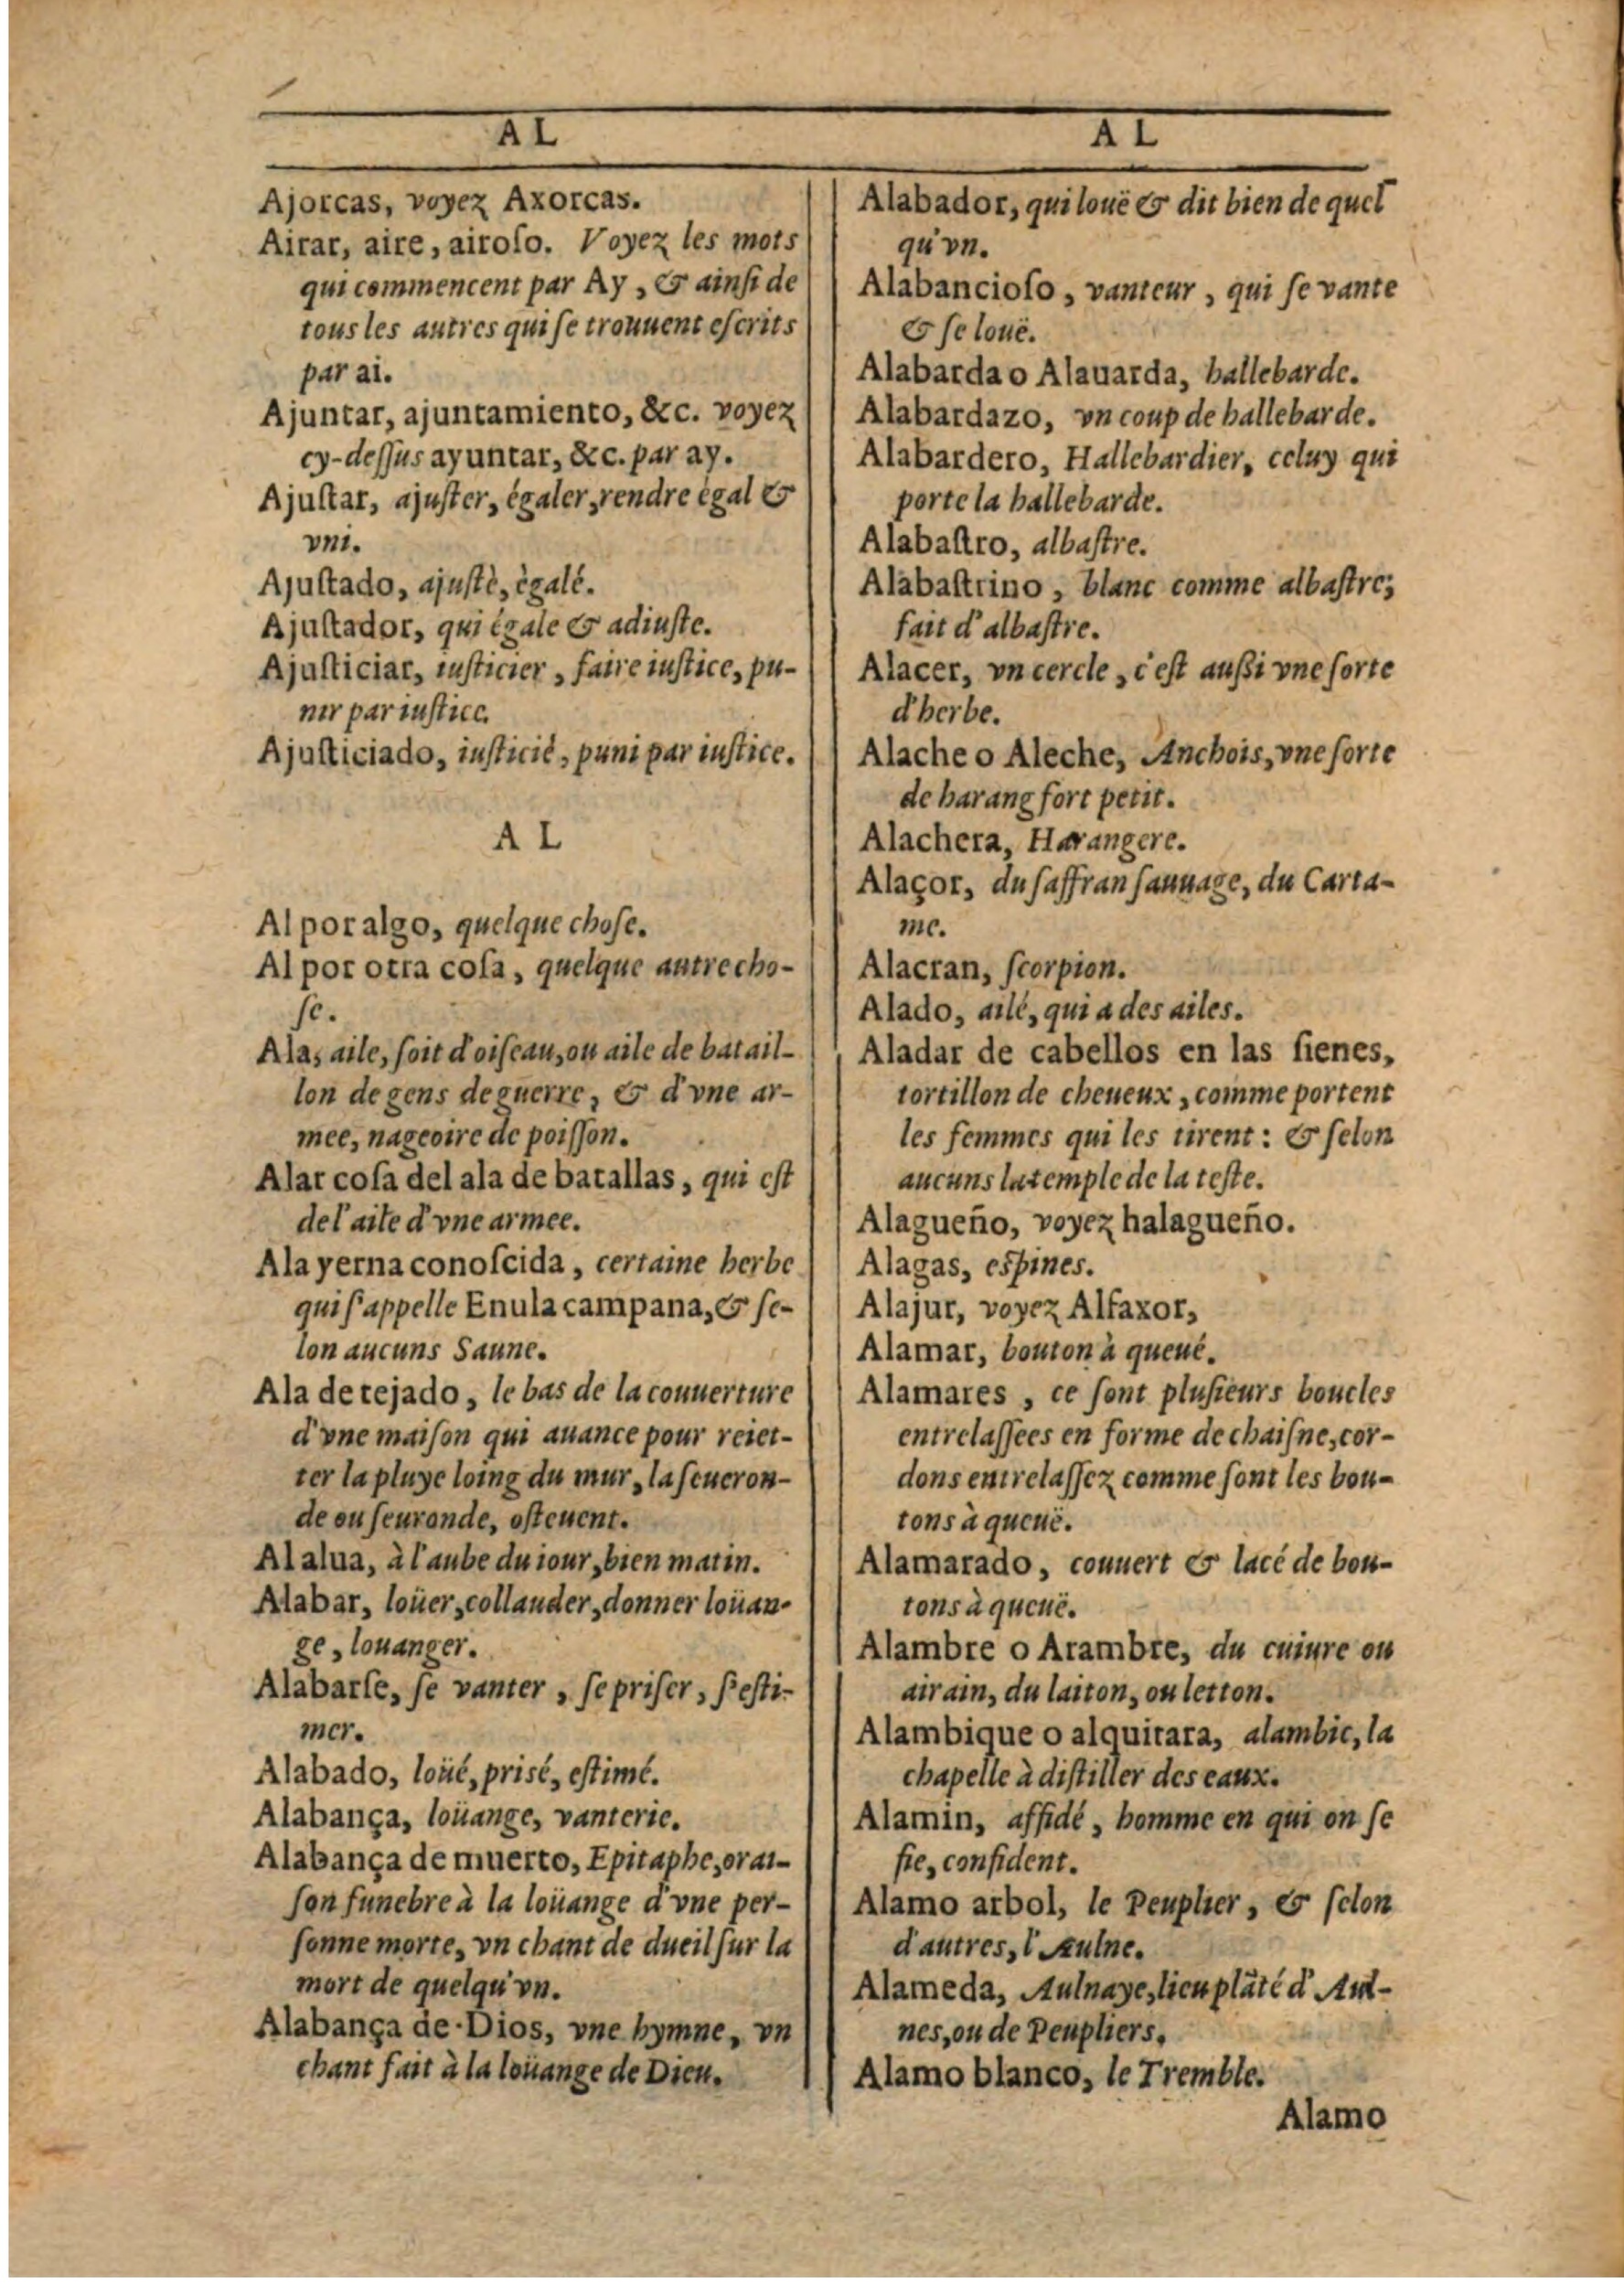 AL
Ajorcas, voyez Axorcas.
Airar, aire, airoſo. Voyez les mots
qui commencent par Ay, & ainſi de
tous les autres qui ſe trouuent eſcrits
par ai.
Ajuntar, ajuntamiento, &c. voyez
cy-deſſus ayuntar, &c. par ay.
Ajuſtar, ajuſter, égaler, rendre égal &
vni.
Ajuſtado, ajuſtè, ègalé.
Ajuſtador, qui égale & adiuſte.
Ajuſticiar, iuſticier, faire iuſtice, pu-
nir par iuſtice.
Ajuſticiado, iuſticié, puni par iuſtice.
AL
Al por algo, quelque choſe.
Al por otra coſa, quelque autre cho-
ſe.
Ala, aile, ſoit d'oiſeau, ou aile de batail-
lon de gens de guerre, & d'vne ar-
mee, nageoire de poiſſon.
Alar coſa del ala de batallas, qui eſt
de l'aile d'vne armee.
Ala yerna conoſcida, certaine herbe
qui ſ'appelle Enula campana, & ſe-
lon aucuns Saune.
Ala de tejado, le bas de la couuerture
d'vne maiſon qui auance pour reiet-
ter la pluye loing du mur, la ſeueron-
de ou ſeuronde, oſteuent.
Al alua, à l'aube du iour, bien matin.
Alabar, loüer, collauder, donner loüan-
ge, louanger.
Alabarſe, ſe vanter, ſe priſer, ſ'eſti-
mer.
Alabado, loüé, prisé, eſtimé.
Alabança, loüange, vanterie.
Alabança de muerto, Epitaphe, orai-
ſon funebre à la loüange d'vne per-
ſonne morte, vn chant de dueil ſur la
mort de quelqu'vn.
Alabança de Dios, vne hymne, vn
chant fait à la loüange de Dieu.
AL
Alabador, qui louë & dit bien de quel
qu'vn.
Alabancioſo, vanteur, qui ſe vante
& ſe louë.
Alabarda o Alauarda, hallebarde.
Alabardazo, vn coup de hallebarde.
Alabardero, Hallebardier, celuy qui
porte la hallebarde.
Alabaſtro, albaſtre.
Alabaſtrino, blanc comme albaſtre;
fait d'albaſtre.
Alacer, vn cercle, c'eſt auſſi vne ſorte
d'herbe.
Alache o Aleche, Anchois, vne ſorte
de harang fort petit.
Alachera, Harangere.
Alaçor, du ſaffran ſauuage, du Carta-
me.
Alacran, ſcorpion.
Alado, ailé, qui a des ailes.
Aladar de cabellos en las ſienes,
tortillon de cheueux, comme portent
les femmes qui les tirent : & ſelon
aucuns la temple de la teſte.
Alagueño, voyez halagueño.
Alagas, eſpines.
Alajur, voyez Alfaxor,
Alamar, bouton à queué.
Alamares, ce ſont pluſieurs boucles
entrelaſſees en forme de chaiſne, cor-
dons entrelaſſez comme ſont les bou-
tons à queuë.
Alamarado, couuert & lacé de bou-
tons à queuë.
Alambre o Arambre, du cuiure ou
airain, du laiton, ou letton.
Alambique o alquitara, alambic, la
chapelle à diſtiller des eaux.
Alamin, affidé, homme en qui on ſe
fie, confident.
Alamo arbol, le Peuplier, & ſelon
d'autres, l'Aulne.
Alameda, Aulnaye, lieu plãté d'Aul-
nes, ou de Peupliers.
Alamo blanco, le Tremble.
Alamo